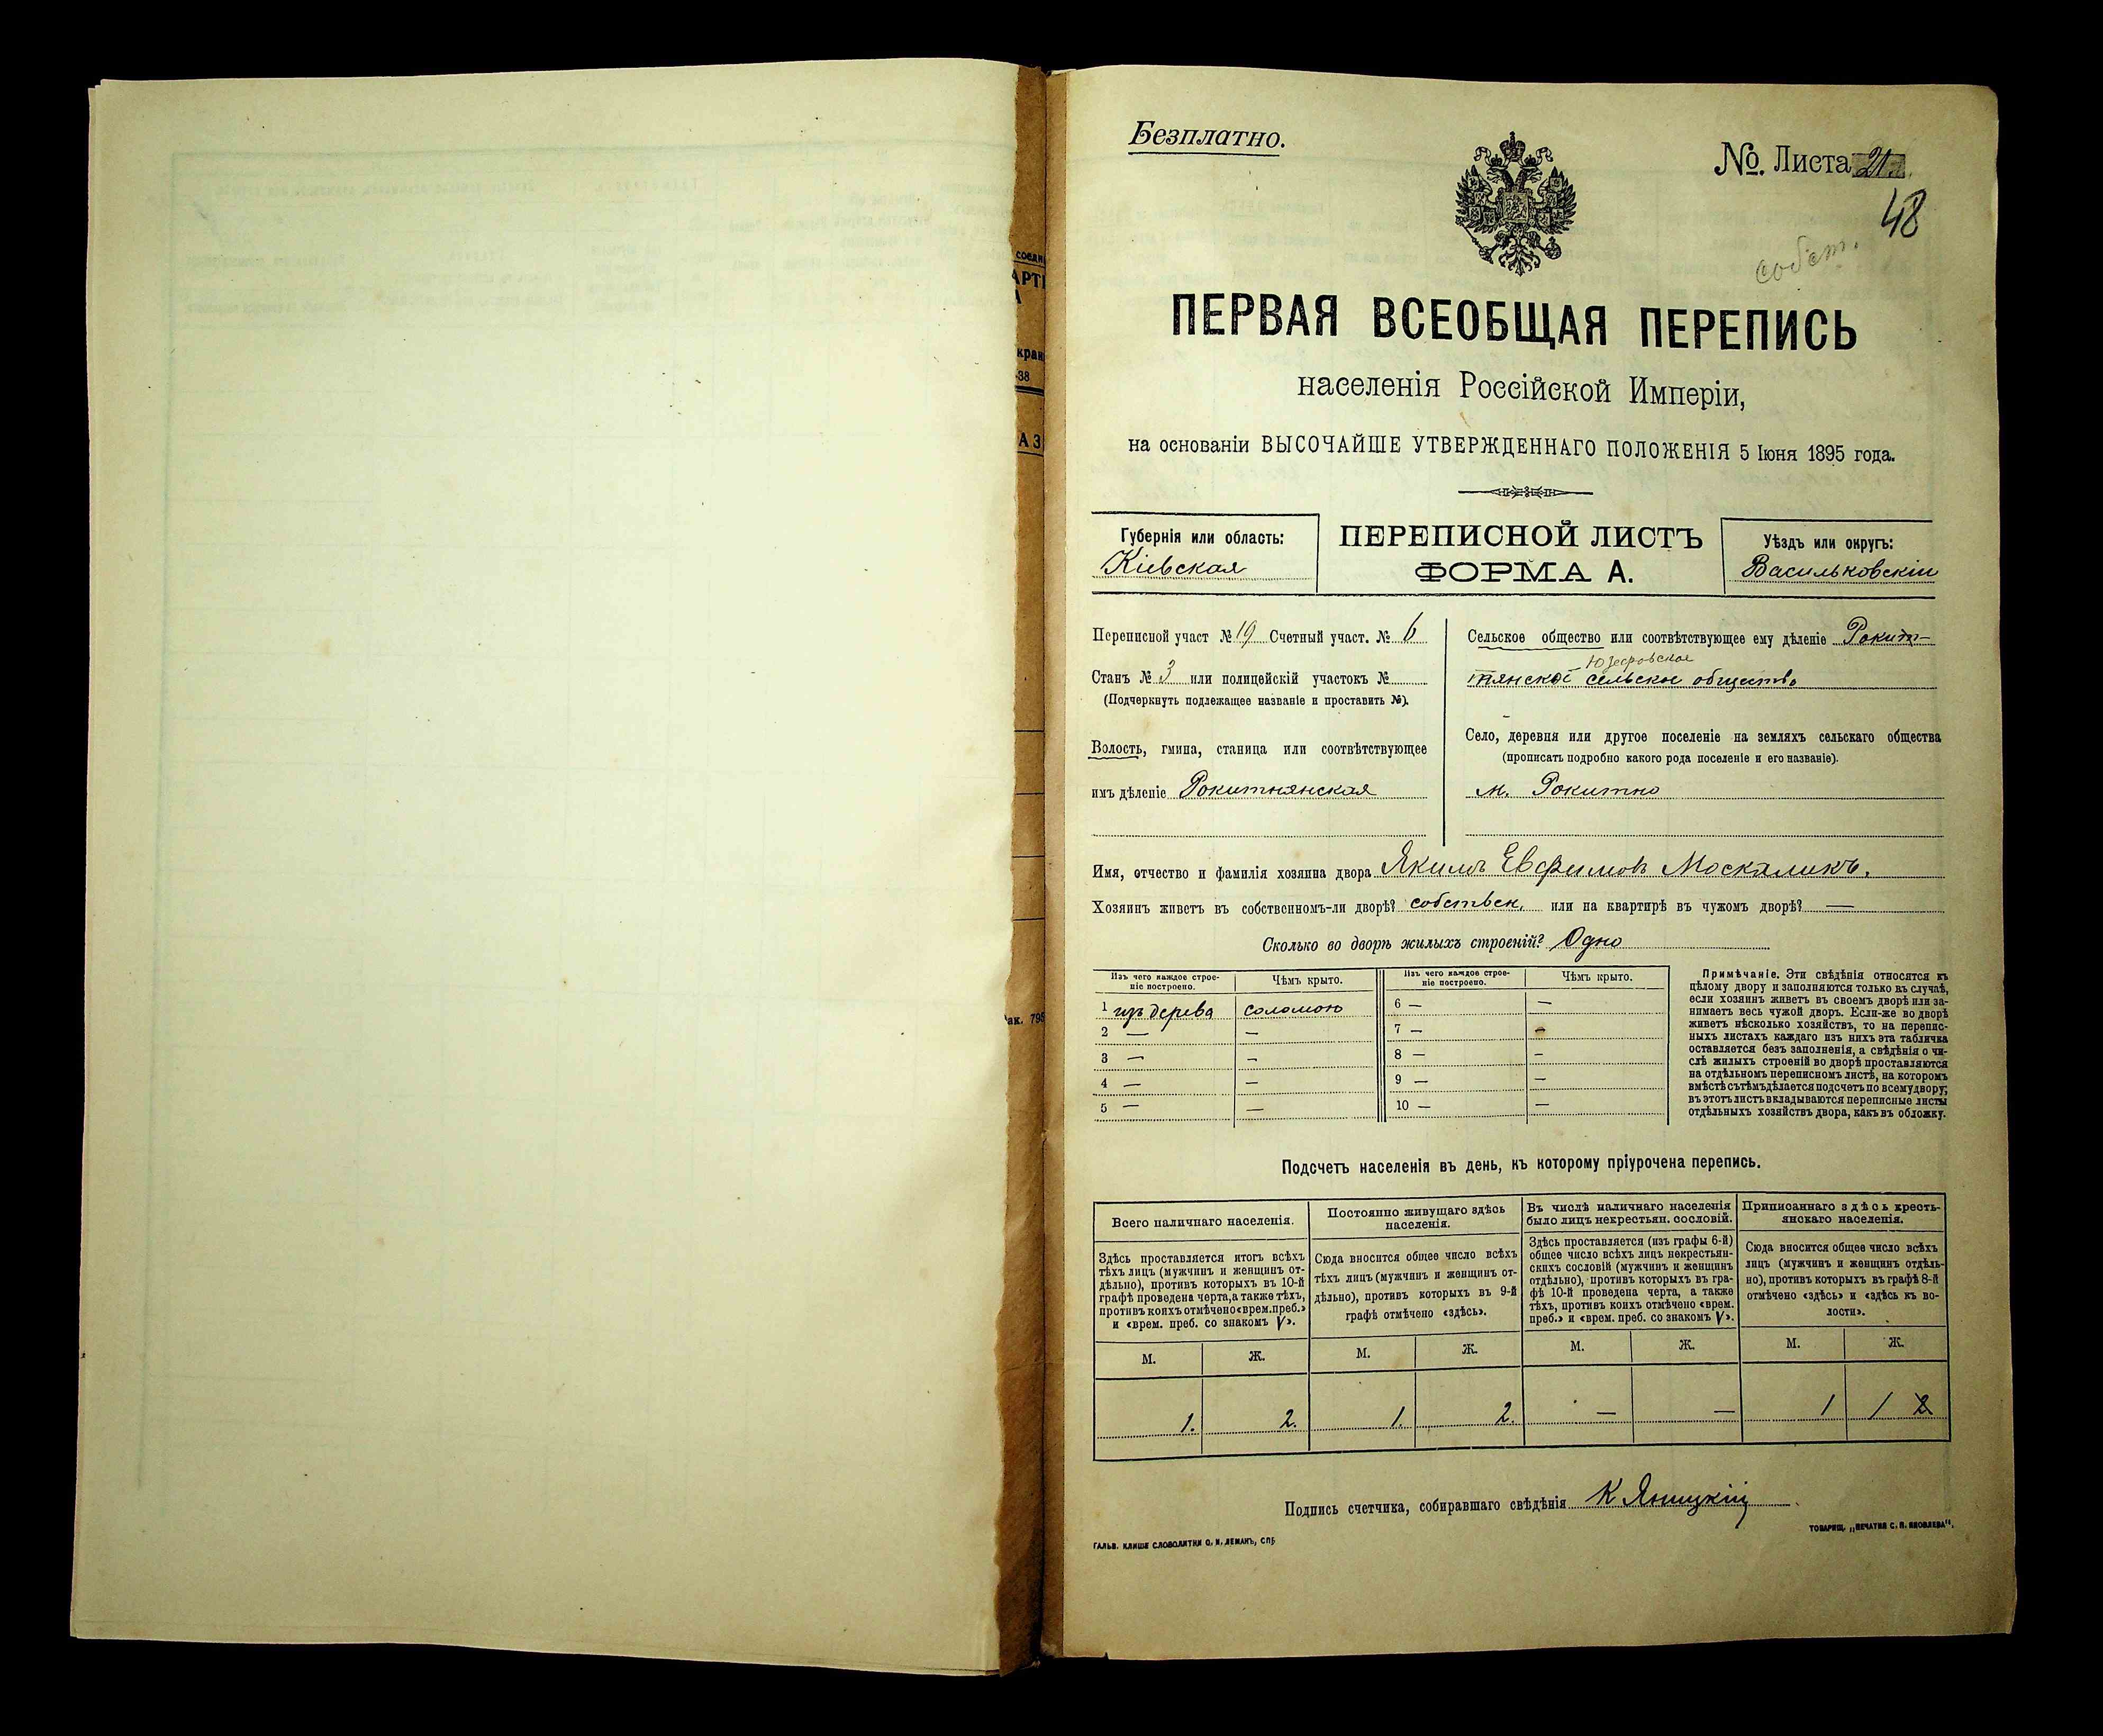 соедн
АРТІ
А
кран
-38
А З
ак. 795
Безплатно.
№. Листа 21
48
собст.
ПЕРВАЯ ВСЕОБЩАЯ ПЕРЕПИСЬ
населенія Россійской Имперіи,
на основаніи ВЫСОЧАЙШЕ УТВЕРЖДЕННАГО ПОЛОЖЕНІЯ 5 Іюня 1895 года.
Губернія или область:
Кіевская
ПЕРЕПИСНОЙ ЛИСТЪ
ФОРМА А.
Уѣздъ или округъ:
Васильковскій
Переписной участ № 19 Счетный участ. № 6
Станъ № 3 или полицейскій участокъ №
(Подчеркнуть подлежащее названіе и проставить №).
Волость, гмина, станица или соотвѣтствующее
имъ дѣленіе Рокитнянская
Сельское общество или соотвѣтствующее ему дѣленіе Рокит-
Юзефовское
нянской сельское общество
Село, деревня или другое поселеніе на земляхъ сельскаго общества
(прописать подробно какого рода поселеніе и его названіе).
м. Рокитно
Имя, отчество и фамилія хозяина двора Якимъ Евфимовъ Москаликъ.
Хозяинъ живетъ въ собственномъ-ли дворѣ? собствен. или на квартирѣ въ чужомъ дворѣ? —
Сколько во дворѣ жилыхъ строеній? Одно
Изъ чего каждое строе-
ніе построено.
Чѣмъ крыто.
Изъ чего каждое строе-
ніе построено.
Чѣмъ крыто.
1 изъ дерева соломою 6 — —
2 — — 7 — —
3 — — 8 — —
4 — — 9 — —
5 — — 10 — —
Примѣчаніе. Эти свѣдѣнія относятся къ
цѣлому двору и заполняются только въ случаѣ,
если хозяинъ живетъ въ своемъ дворѣ или за-
нимаетъ весь чужой дворъ. Если-же во дворѣ
живетъ нѣсколько хозяйствъ, то на перепис-
ныхъ листахъ каждаго изъ нихъ эта табличка
оставляется безъ заполненія, а свѣдѣнія о чи-
слѣ жилыхъ строеній во дворѣ проставляются
на отдѣльномъ переписномъ листѣ, на которомъ
вмѣстѣ съ тѣмъ дѣлается подсчетъ по всему двору;
въ этотъ листъ вкладываются переписные листы
отдѣльныхъ хозяйствъ двора, какъ въ обложку.
Подсчетъ населенія въ день, къ которому пріурочена перепись.
Всего наличнаго населенія.
Здѣсь проставляется итогъ всѣхъ
тѣхъ лицъ (мужчинъ и женщинъ от-
дѣльно), противъ которыхъ въ 10-й
графѣ проведена черта, а также тѣхъ,
противъ коихъ отмѣчено «врем. преб.»
и «врем. преб. со знакомъ V».
Постоянно живущаго здѣсь
населенія.
Сюда вносится общее число всѣхъ
тѣхъ лицъ (мужчинъ и женщинъ от-
дѣльно), противъ которыхъ въ 9-й
графѣ отмѣчено «здѣсь».
Въ числѣ наличнаго населенія
было лицъ некрестьян. сословій.
Здѣсь проставляется (изъ графы 6-й)
общее число всѣхъ лицъ некрестьян-
скихъ сословій (мужчинъ и женщинъ
отдѣльно), противъ которыхъ въ гра-
фѣ 10-й проведена черта, а также
тѣхъ, противъ коихъ отмѣчено «врем.
преб.» и «врем. преб. со знакомъ V».
Приписаннаго здѣсь кресть-
янскаго населенія.
Сюда вносится общее число всѣхъ
лицъ (мужчинъ и женщинъ отдѣль-
но), противъ которыхъ въ графѣ 8-й
отмѣчено «здѣсь» и «здѣсь къ во-
лости».
М. Ж. М. Ж. М. Ж. М. Ж.
1. 2. 1. 2. — — 1 1 2
Подпись счетчика, собиравшаго свѣдѣнія К Яницкій
ГАЛЬВ. КЛИШЕ СЛОВОЛИТНИ О. И. ЛЕМАНЪ, СПБ
ТОВАРИЩ. „ПЕЧАТНЯ С. П. ЯКОВЛЕВА“.